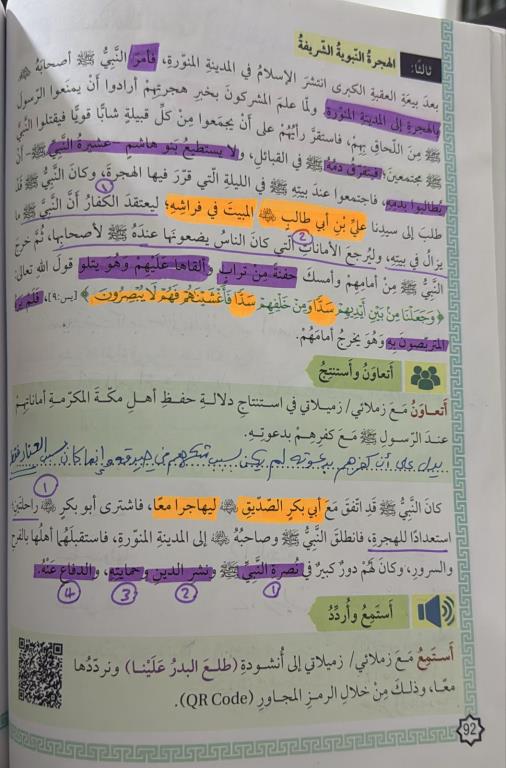 ثالثًا: الهجرةُ النبويةُ الشريفةُ
بعدَ بيعةِ العقبةِ الكبرى انتشرَ الإسلامُ في المدينةِ المنوّرةِ، فأمرَ النَّبيُّ ﷺ أصحابَهُ
بالهجرةِ إلى المدينةِ المنوّرةِ. ولمّا علمَ المشركونَ بخبرِ هجرتِهِمْ أرادوا أنْ يمنَعوا الرّسولَ
ﷺ مِنَ اللّحاقِ بِهِمْ، فاستقرَّ رأيُهُمْ على أنْ يجمَعوا مِنْ كلِّ قبيلةٍ شابًّا قويًّا فيقتلوا النبيَّ
ﷺ مجتمعينَ؛ فيتفرّقَ دمُهُ ﷺ في القبائلِ، ولا يستطيعَ بَنو هاشمٍ - عشيرةُ النَّبيِّ ﷺ - أنْ
يطالبوا بدمِهِ، فاجتمعوا عندَ بيتِهِ ﷺ في الليلةِ الّتي قرّرَ فيها الهجرةَ، وكانَ النَّبيُّ ﷺ قدْ
طلبَ إلى سيدِنا عليِّ بْنِ أبي طالبٍ المبيتَ في فراشِهِ؛ ليعتقدَ الكفارُ أنَّ النَّبيَّ ﷺ ما
يزالُ في بيتِهِ، وليُرجعَ الأماناتِ الّتي كانَ الناسُ يضعونَها عندَهُ ﷺ لأصحابِها، ثُمَّ خرجَ
النَّبيُّ ﷺ مِنْ أمامِهِمْ وأمسكَ حفنةً مِنْ ترابٍ وألقاها عَلَيْهِمْ وَهُوَ يتلو قولَ اللهِ تعالى:
﴿وَجَعَلْنَا مِنْ بَيْنِ أَيْدِيهِمْ سَدًّا وَمِنْ خَلْفِهِمْ سَدًّا فَأَغْشَيْنَاهُمْ فَهُمْ لَا يُبْصِرُونَ﴾ [يس:٩]، فَلَمْ يرَهُ
المتربّصونَ بِهِ وَهُوَ يخرجُ أمامَهُمْ.
أتعاوَنُ وأستنتِجُ
أتعاوَنُ مَعَ زملائي/ زميلاتي في استنتاجِ دلالةِ حفظِ أهلِ مكّةَ المكرّمةِ أماناتِهِمْ
عندَ الرّسولِ ﷺ مَعَ كفرِهِمْ بدعوتِهِ.
يدل على أن كفرهم بدعوته لم يكن بسبب شكهم في صدقه وإنما كان بسبب العناد فقط
كانَ النَّبيُّ ﷺ قَدِ اتّفقَ مَعَ أبي بكرٍ الصّدّيقِ ليهاجرا معًا، فاشترى أبو بكرٍ راحلتَينِ؛
استعدادًا للهجرةِ، فانطلقَ النَّبيُّ ﷺ وصاحبُهُ إلى المدينةِ المنوّرةِ، فاستقبلَهُما أهلُها بالفرحِ
والسرورِ، وكانَ لَهُمْ دورٌ كبيرٌ في نُصرةِ النَّبيِّ ﷺ ونشرِ الدينِ وحمايتِهِ، والدفاعِ عَنْهُ.
أستمِعُ وأُردِّدُ
أستمِعُ مَعَ زملائي/ زميلاتي إلى أُنشودةِ (طلعَ البدرُ عَلَيْنا) ونردّدُها
معًا، وذلكَ مِنْ خلالِ الرمزِ المجاورِ (QR Code).
92